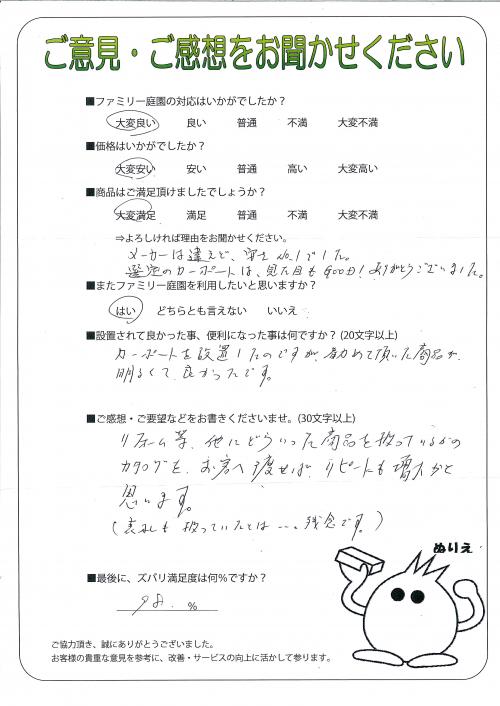 ご意見・ご感想をお聞かせください
■ファミリー庭園の対応はいかがでしたか？
大変良い 良い 普通 不満 大変不満
■価格はいかがでしたか？
大変安い 安い 普通 高い 大変高い
■商品はご満足頂けましたでしょうか？
大変満足 満足 普通 不満 大変不満
⇒よろしければ理由をお聞かせください。
メーカーは違えど、安さNo.1でした。
選定のカーポートは、見た目もGOOD！ありがとうございました。
■またファミリー庭園を利用したいと思いますか？
はい どちらとも言えない いいえ
■設置されて良かった事、便利になった事は何ですか？(20文字以上)
カーポートを設置したのですが、勧めて頂いた商品が、
明るくて良かったです。
■ご感想・ご要望などをお書きくださいませ。(30文字以上)
リフォーム等、他にどういった商品を扱っているかの
カタログを、お客へ渡せば、リピートも増えるかと
思います。
(表札も扱っていたとは…。残念です。)
ぬりえ
■最後に、ズバリ満足度は何％ですか？
98. %
ご協力頂き、誠にありがとうございました。
お客様の貴重な意見を参考に、改善・サービスの向上に活かして参ります。